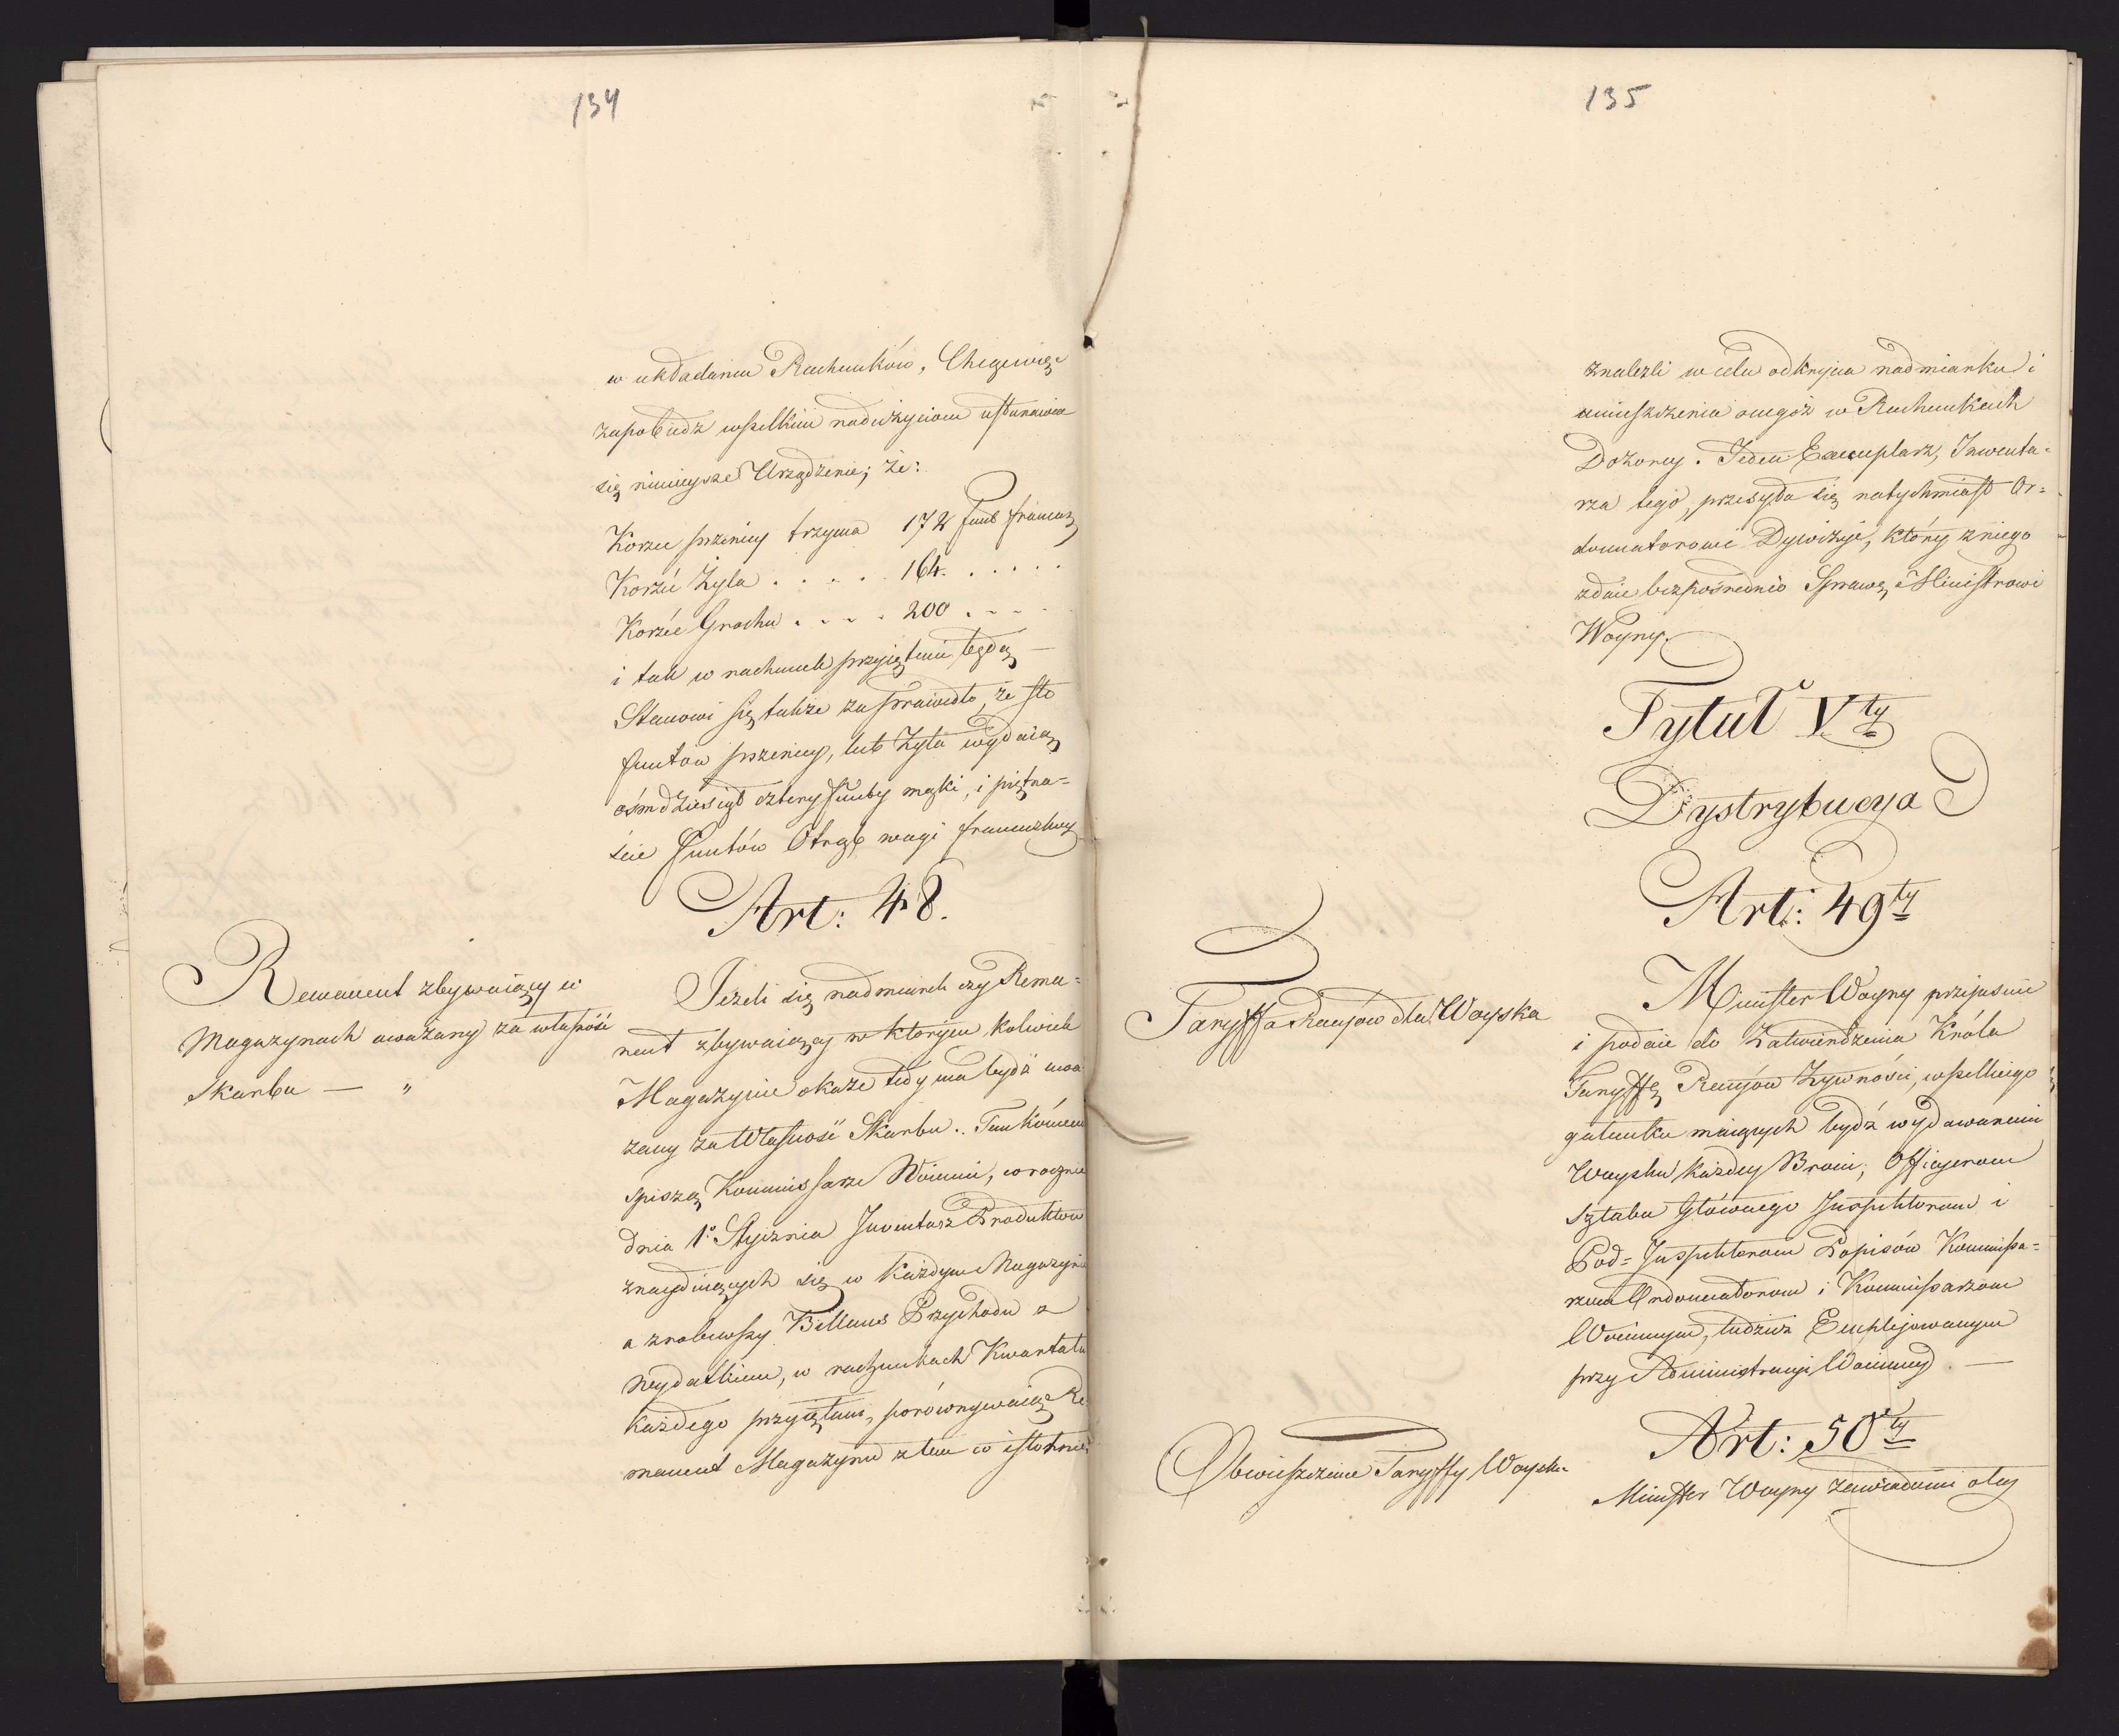 134
w układaniu Rachunków, Chcąc więc
zapobiedz wszelkim nadużyciom ustanawia
się ninieysze Urządzenie; że:
Korzec pszenicy trzyma 172 funt francuz
Korzec Żyta . . . . . 164. . . . . .
Korzec Grochu . . . . 200 . . . .
i tak w rachunek przyiętemi będą —
Stanowi się także za prawidło, że sto
funtow pszenicy, lub Żyta wydaią
ośmdziesiąt cztery funty mąki, i piętna=
ście Funtów Otrąb wagi francuzkiey
Art: 48.
Remanent zbywaiący w
Magazynach uważany za własność
Skarbu — "
Jeżeli się nadmiarek czy Rema=
nent zbywaiący w którym kolwiek
Magazynie okaże tedy ma bydź uwa
żany za Własność Skarbu. Tym końcem
spiszą Kommissarze Woienni, corocznie
dnia 1° Stycznia Inwentarz Produktow
znayduiących się w każdym Magazynie
a zrobiwszy Billans Przychodu z
Wydatkiem, w rachunkach Kwartału
każdego przyiętemi, porównywaiąc Re
manent Magazynu z tem co istotnie
135
znaleźli w celu odkrycia nadmiarku i
umieszczenia onegoż w Rachunkach
Dozorcy. Jeden Exemplarz, Inwenta=
rza tego, przesyła się natychmiast Or=
donnatorowi Dywizyi, który z niego
zdaie bezpośrednio Sprawę Ministrowi
Woyny.
Tytuł V ty
Dystrybucya
Art: 49 ty
Taryffa Racyow dla Woyska
Minister Woyny przepisuie
i podaie do Zatwierdzenia Króla
Taryffę Racyow Żywności, wszelkiego
gatunku maiących bydź wydawanemi
Woysku każdey Broni, Officyerom
Sztabu Głównego Inspektorom i
Pod=Inspektorom Popisów Kommissa=
rzom Ordonnatorom i Kommissarzom
Woiennym, tudzież Emplojowanym
przy Administracyi Woienney. —
Art: 50 ty
Obwieszczenie Taryffy Woysku
Minister Woyny zawiadomi o tey